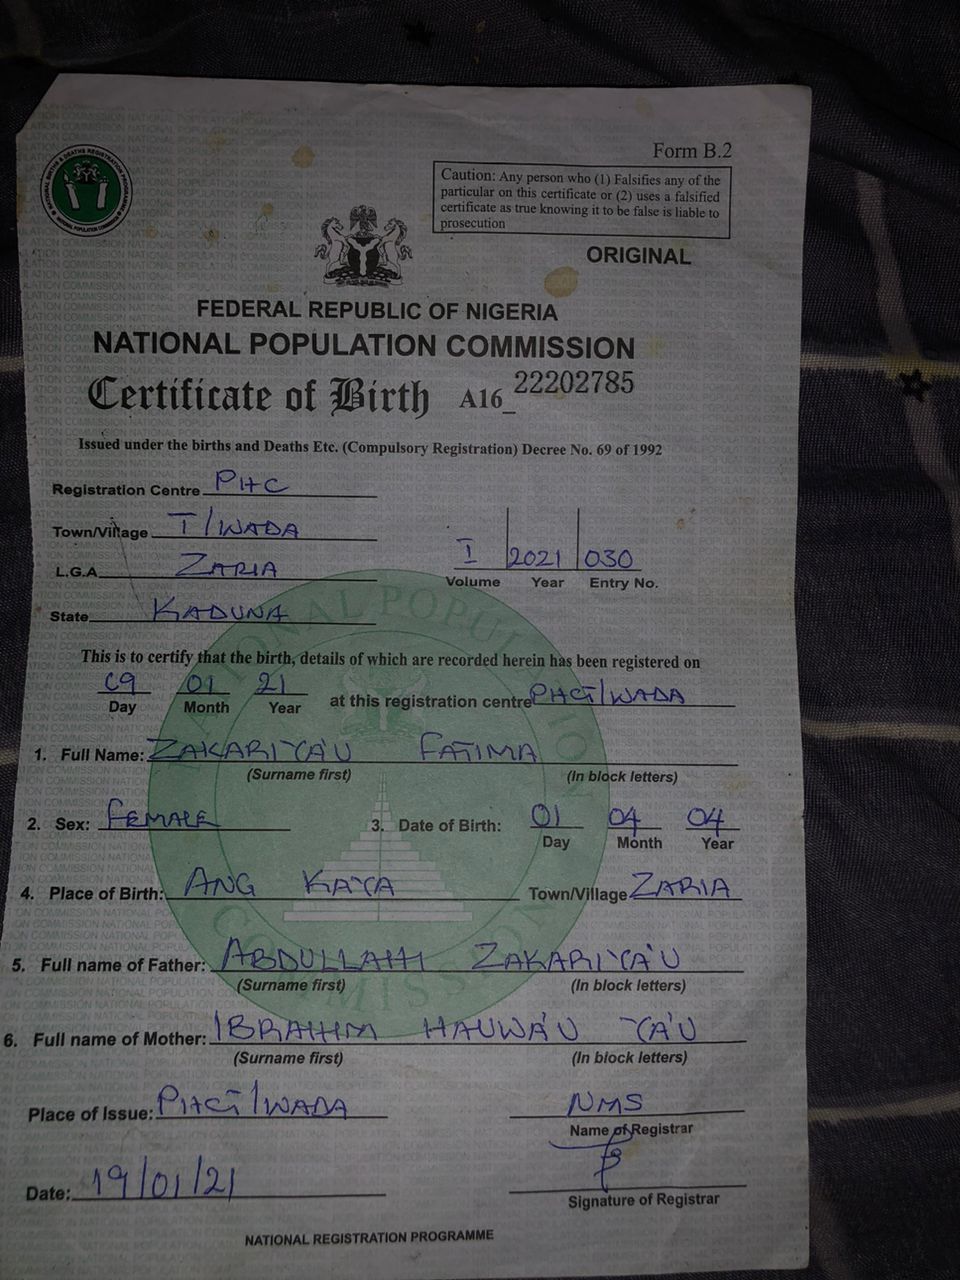 Form B.2
Caution: Any person who (1) Falsifies any of the
particular on this certificate or (2) uses a falsified
certificate as true knowing it to be false is liable to
prosecution
ORIGINAL
FEDERAL REPUBLIC OF NIGERIA
NATIONAL POPULATION COMMISSION
Certificate of Birth A16_ 22202785
Issued under the births and Deaths Etc. (Compulsory Registration) Decree No. 69 of 1992
Registration Centre PHC
Town/Village T/WADA
L.G.A. ZARIA
I 2021 030
Volume Year Entry No.
State KADUNA
This is to certify that the birth, details of which are recorded herein has been registered on
09 01 21 at this registration centre PHCT/WADA
Day Month Year
1. Full Name: ZAKARIYA'U FATIMA
(Surname first) (In block letters)
2. Sex: FEMALE 3. Date of Birth: 01 04 04
Day Month Year
4. Place of Birth: ANG KAYA Town/Village ZARIA
5. Full name of Father: ABDULLAHI ZAKARIYA'U
(Surname first) (In block letters)
6. Full name of Mother: IBRAHIM HAUWA'U YA'U
(Surname first) (In block letters)
Place of Issue: PHCT/WADA NMS
Name of Registrar
Date: 19/01/21
Signature of Registrar
NATIONAL REGISTRATION PROGRAMME